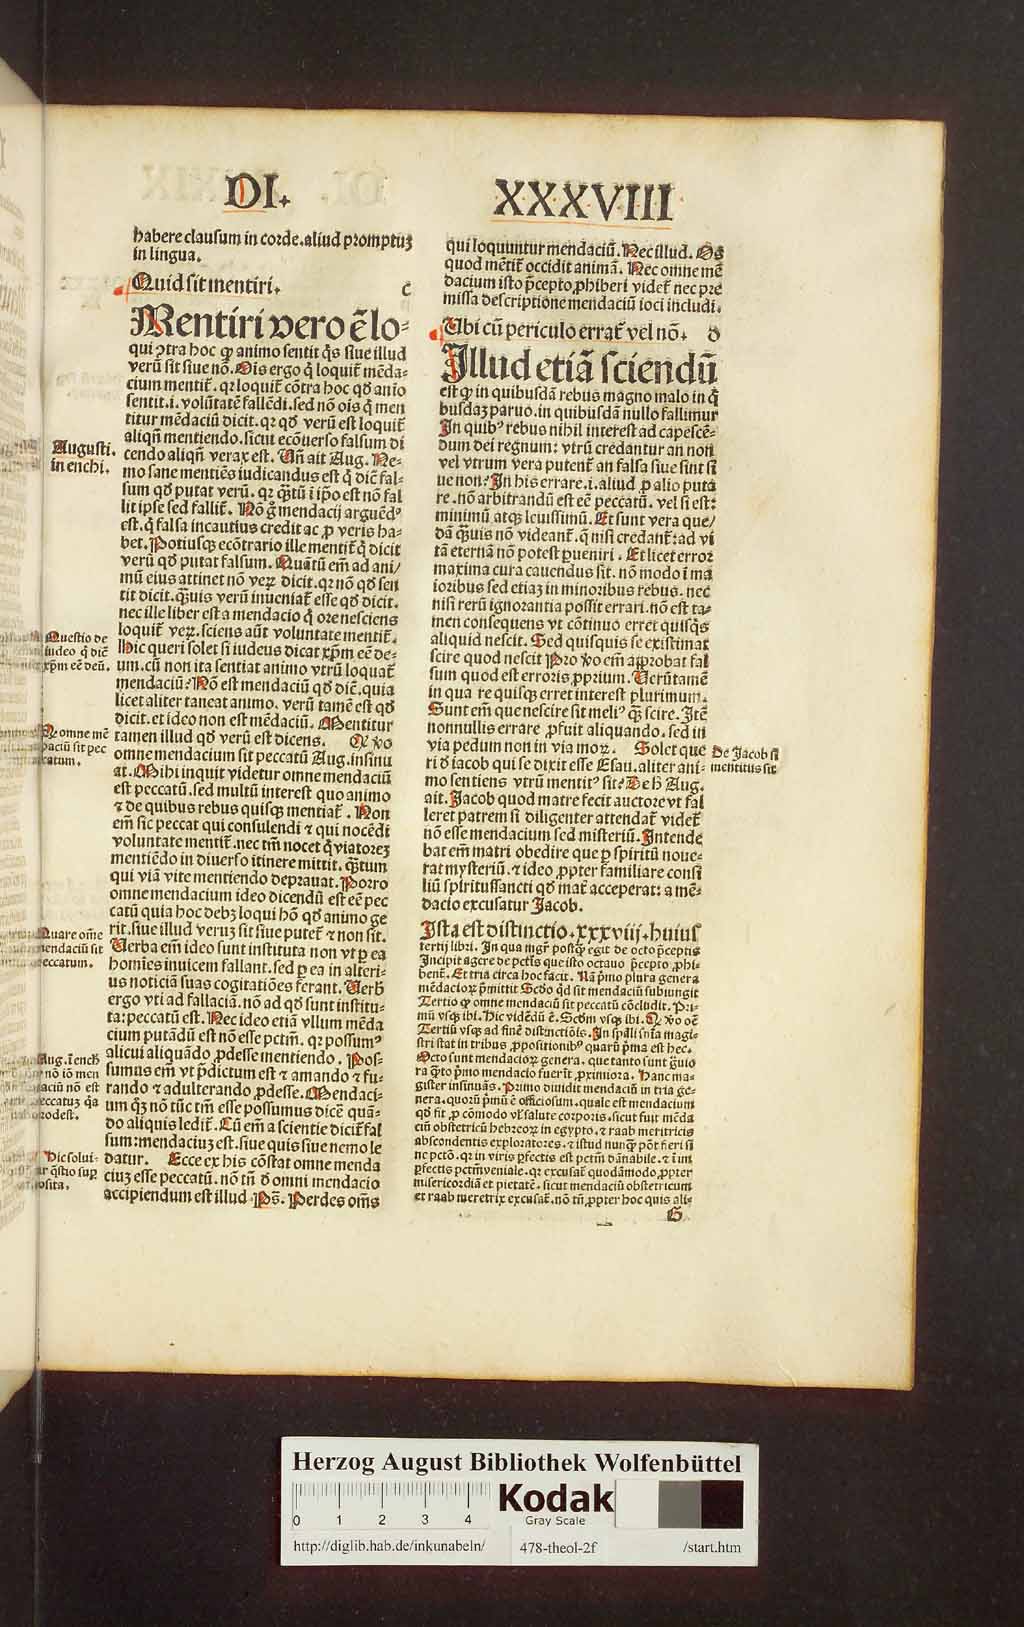 DI.
XXXVIII
habere clausum in corde.aliud promptuꝫ
in lingua.
Quid sit mentiri. c
Mentiri vero ē lo⸗
qui ꝯtra hoc ꝙ animo sentit q̄s siue illud
verū sit siue nō. Ois ergo q̇ loquit̄ mēda⸗
cium mentit̄. qꝛ loquit̄ cōtra hoc qd̄ aīo
sentit.i.volūtatē fallēdi.sed nō ois q̇ men
titur mēdaciū dicit.qꝛ qd̄ verū est loquit̄
aliqn̄ mentiendo.sicut ecōuerso falsum di
cendo aliqn̄ verax est. Un̄ ait Aug. Ne⸗
mo sane mentiēs iudicandus est q̇ dic̄ fal⸗
sum qd̄ putat verū. qꝛ q̄tū ī ip̄o est nō fal
lit ipse sed fallit̄. Nō g̊ mendacij arguēdꝰ
est.q̇ falsa incautius credit ac ꝓ veris ha⸗
bet.Potiusqꝫ ecōtrario ille mentit̄ q̇ dicit
verū qd̄ putat falsum. Quātū em̄ ad ani/
mū eius attinet nō veꝝ dicit.qꝛ nō qd̄ sen
tit dicit.q̄uis verū inueniat̄ esse qd̄ dicit.
nec ille liber est a mendacio q̇ ore nesciens
loquit̄ veꝝ.sciens aūt voluntate mentit̄.
Hic queri solet si iudeus dicat xp̄m eē de⸗
um.cū non ita sentiat animo vtrū loquat̄
mendaciū? Nō est mendaciū qd̄ dic̄.quia
licet aliter taneat animo. verū tamē est qd̄
dicit.et ideo non est mēdaciū. Mentitur
tamen illud qd̄ verū est dicens. Q v̊o
omne mendacium sit peccatū Aug.insinu
at.Mihi inquit videtur omne mendaciū
est peccatū.sed multū interest quo animo
⁊ de quibus rebus quisqꝫ mentiat̄. Non
em̄ sic peccat qui consulendi ⁊ qui nocēdi
voluntate mentit̄.nec tm̄ nocet q̇ viatoreꝫ
mentiēdo in diuerso itinere mittit. q̄tum
qui viā vite mentiendo deprauat. Porro
omne mendacium ideo dicendū est eē pec
catū quia hoc debꝫ loqui hō qd̄ animo ge
rit.siue illud veruꝫ sit siue putet̄ ⁊ non sit.
Verba em̄ ideo sunt instituta non vt ꝑ ea
homīes inuicem fallant.sed ꝑ ea in alteri⸗
us noticiā suas cogitatiōes ferant. Verb̄
ergo vti ad fallaciā.nō ad qd̄ sunt institu⸗
ta:peccatū est. Nec ideo etiā vllum mēda
cium putādū est nō esse pctm̄. qꝛ possumꝰ
alicui aliquādo ꝓdesse mentiendo. Pos⸗
sumus em̄ vt p̄dictum est ⁊ amando ⁊ fu⸗
rando ⁊ adulterando ꝓdesse. Mendaci⸗
um qꝫ nō tūc tm̄ esse possumus dicē quā⸗
do aliquis ledit̄. Cū em̄ a sciente dicit̄ fal
sum:mendaciuꝫ est.siue quis siue nemo le
datur. Ecce ex his cōstat omne menda
ciuꝫ esse peccatū. nō tn̄ d̄ omni mendacio
accipiendum est illud Ps̄. Perdes om̄s
Augusti.
in enchi.
Questio de
iudeo q̇ dic̄
xp̄m eē deū.
Q omne mē
daciū sit pec
catum.
Quare om̄e
mendaciū sit
peccatum.
Aug. ī ench
nō iō men
daciū nō est
peccatuꝫ q̄a
prodest.
Hic solui⸗
osita.
qui loquuntur mendaciū. Nec illud. Os
quod mētit̄ occidit animā. Nec omne mē
dacium isto p̄cepto ꝓhiberi videt̄ nec pre
missa descriptione mendaciū ioci includi.
Ubi cū periculo errat̄ vel nō. d
Illud etiā sciendū
est ꝙ in quibusdā rebus magno malo in q̇
busdaꝫ paruo.in quibusdā nullo fallimur
In quibꝰ rebus nihil interest ad capescē⸗
dum dei regnum: vtrū credantur an non
vel vtrum vera putent̄ an falsa siue sint si
ue non? In his errare.i.aliud ꝓ alio puta
re.nō arbitrandū est eē peccatū. vel si est:
minimū atqꝫ leuissimū. Et sunt vera que/
dā q̄uis nō videant̄. q̄ nisi credant̄:ad vi
tā eternā nō potest ꝑueniri. Et licet error
maxima cura cauendus sit. nō modo ī ma
ioribus sed etiaꝫ in minoribus rebus. nec
nisi rerū ignorantia possit errari.nō est ta⸗
men consequens vt cōtinuo erret quisq̄s
aliquid nescit. Sed quisquis se existimat
scire quod nescit Pro v̊o em̄ approbat fal
sum quod est erroris ꝓprium. Verūtamē
in qua re quisqꝫ erret interest plurimum.
Sunt em̄ que nescire sit meliꝰ q̄ꝫ scire. Itē
nonnullis errare ꝓfuit aliquando. sed in
via pedum non in via moꝝ. Solet que
ri d̄ iacob qui se dixit esse Esau.aliter ani⸗
mo sentiens vtrū mentitꝰ sit? De h̄ Aug.
ait. Jacob quod matre fecit auctore vt fal
leret patrem si diligenter attendat̄ videt̄
nō esse mendacium sed misteriū. Intende
bat em̄ matri obedire que ꝑ spiritū noue⸗
rat mysteriū.⁊ ideo ꝓpter familiare consi
liū spiritussancti qd̄ mat̄ acceperat: a mē⸗
dacio excusatur Jacob.
Ista est distinctio.xxxviij.huius
tertij libri. In qua mgr̄ postqꝫ egit de octo p̄ceptis
Incipit agere de pctīs que isto octauo p̄cepto ꝓhi⸗
bent̄. Et tria circa hoc facit. Nā p̄mo plura genera
mēdacioꝝ p̄mittit Scd̄o qd̄ sit mendaciū subiungit
Tertio ꝙ omne mendaciū sit peccatū cōcludit. Pri⸗
mū vsqꝫ ibi. Hic vidēdū ē. Scd̄m vsqꝫ ibi. Q v̊o oē
Tertiū vsqꝫ ad finē distinctiōis. In sp̄ali sn̄ia magi⸗
stri stat in tribus ꝓpositionibꝰ quarū p̄ma est hec.
Octo sunt mendacioꝝ genera. que tanto sunt g̊uio
ra q̄to p̄mo mendacio fuerīt ꝓximiora. Hanc ma⸗
gister insinuās. Primo diuidit mendaciū in tria ge⸗
nera.quoꝝ p̄mū ē officiosum.quale est mendacium
qd̄ fit ꝓ cōmodo vl̓ salute corporis.sicut fuit mēda
ciū obstetricū hebreoꝝ in egypto.⁊ raab meritricis
abscondentis exploratores.⁊ istud nunqꝫ pōt fieri si
ne pctō.qꝛ in viris ꝑfectis est pctm̄ dānabile.⁊ ī im
ꝑfectis pctm̄ veniale.qꝛ excusat̄ quodāmodo ꝓpter
misericordiā et pietatē. sicut mendaciū obstetricum
et raab meretrix excusat̄. nō tn̄ ꝓpter hoc quis ali⸗
G
De Jacob si
mentitus sit
Herzog August Bibliothek Wolfenbüttel
0 1 2 3 4
Kodak
Gray Scale
http://diglib.hab.de/inkunabeln/ 478-theol-2f /start.htm